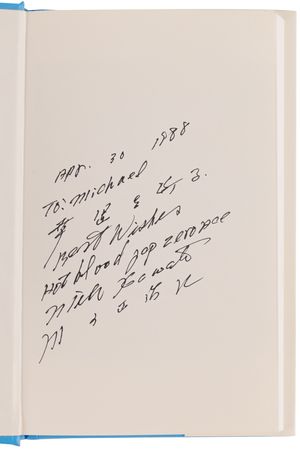 Apr. 30 1988
To: Michael
Best Wishes
Hot blood Jap zero ace
Mich Kawato